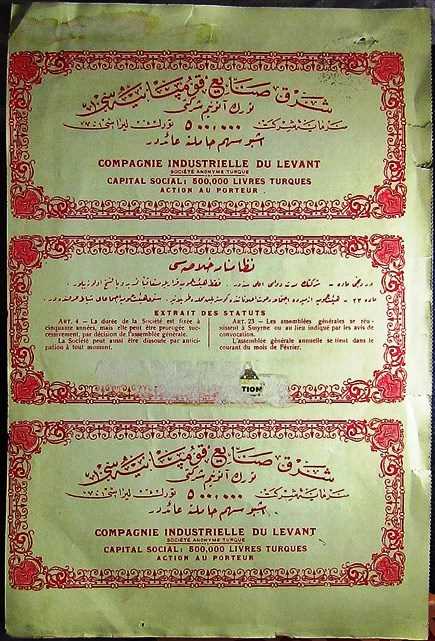 شرق صنايع قومپانيه سى
تورك آنونيم شركتى
سرمايهٔ شركت ٥٠٠٫٠٠٠ تورك ليراسى
اشبو سهم حاملنه عائددر
COMPAGNIE INDUSTRIELLE DU LEVANT
SOCIÉTÉ ANONYME TURQUE
CAPITAL SOCIAL: 500,000 LIVRES TURQUES
ACTION AU PORTEUR
نظامنامه خلاصه سى
EXTRAIT DES STATUTS
ART. 4 — La durée de la Société est fixée à
cinquante années, mais elle peut être prorogée suc-
cessivement, par décision de l'assemblée générale.
La Société peut aussi être dissoute par antici-
pation à tout moment.
ART. 23 — Les assemblées générales se réu-
nissent à Smyrne ou au lieu indiqué par les avis de
convocation.
L'assemblée générale annuelle se tient dans le
courant du mois de Février.
TION
شرق صنايع قومپانيه سى
تورك آنونيم شركتى
سرمايهٔ شركت ٥٠٠٫٠٠٠ تورك ليراسى
اشبو سهم حاملنه عائددر
COMPAGNIE INDUSTRIELLE DU LEVANT
SOCIÉTÉ ANONYME TURQUE
CAPITAL SOCIAL: 500,000 LIVRES TURQUES
ACTION AU PORTEUR